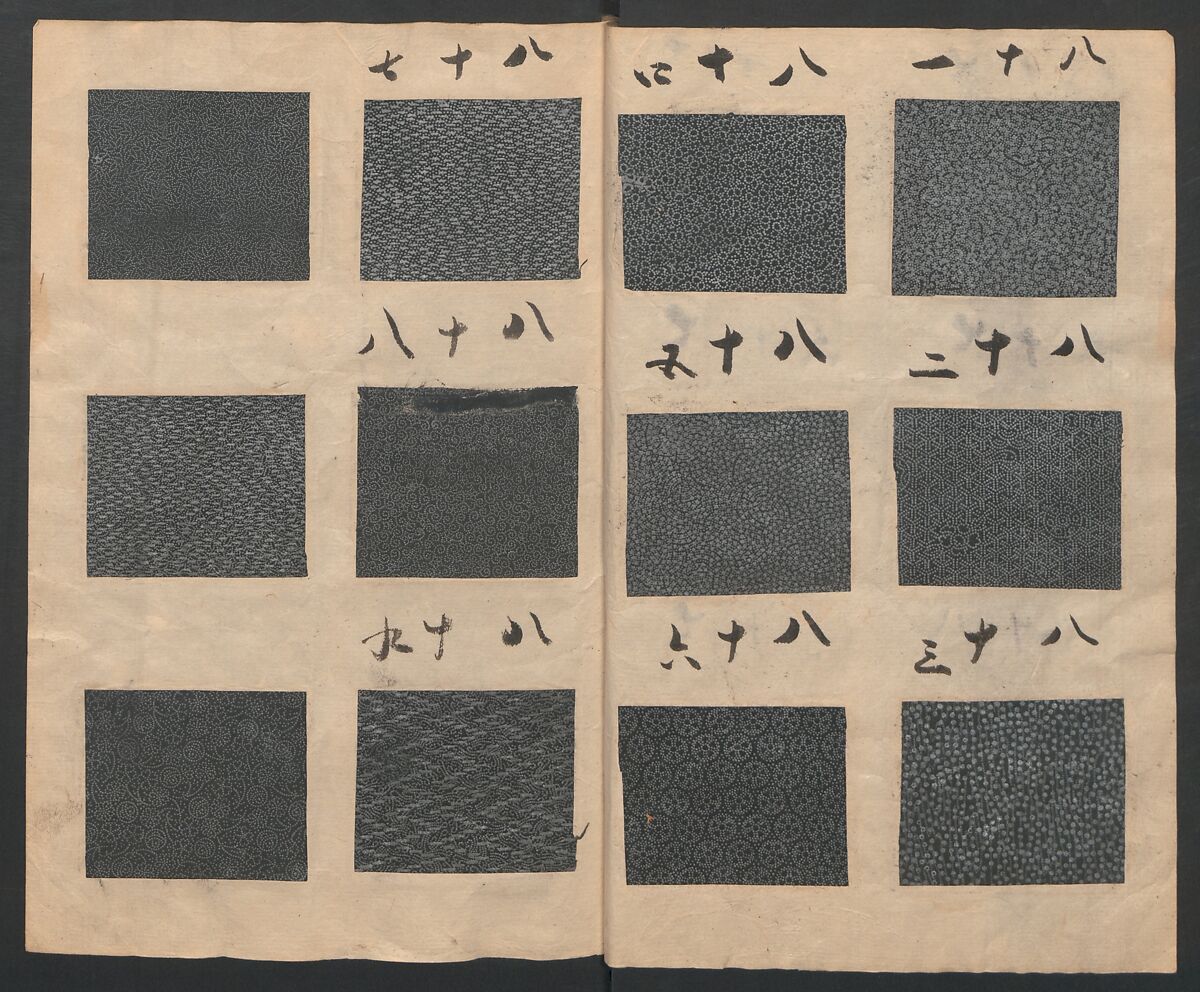 八十一
八十二
八十三
八十四
八十五
八十六
八十七
八十八
八十九